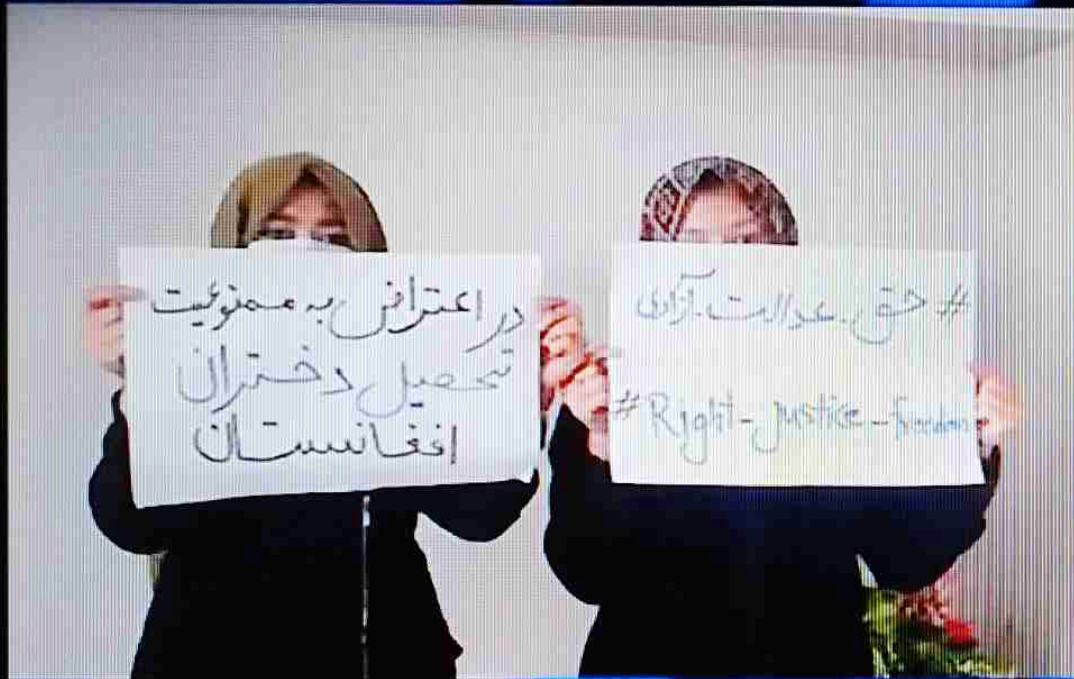 در اعتراض به ممنوعیت
تحصیل دختران
افغانستان
# حق_عدالت_آزادی
#Right-justice-freedom